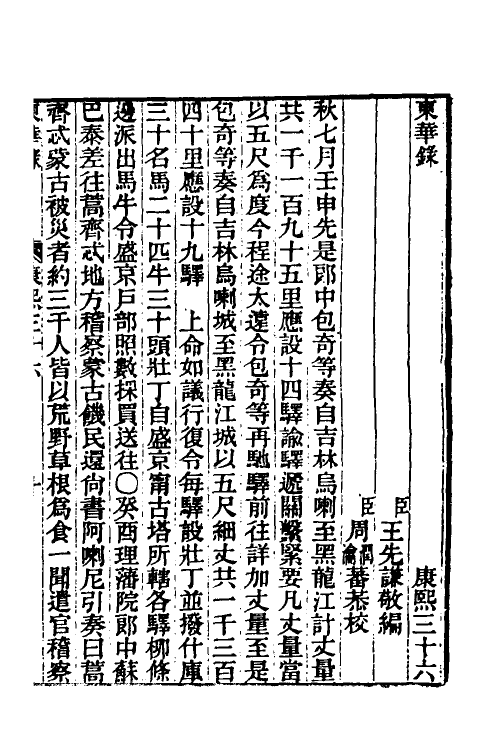 東華錄　康熙三十六
臣王先謙敬編
臣周潤蕃恭校
瀹
秋七月壬申先是郎中包奇等奏自吉林烏喇至黑龍江計丈量
共一千一百九十五里應設十四驛諭驛遞關繫緊要凡丈量當
以五尺為度今程途太遠令包奇等再馳驛前往詳加丈量至是
包奇等奏自吉林烏喇城至黑龍江城以五尺細丈共一千三百
四十里應設十九驛　上命如議行復令每驛設壯丁並撥什庫
三十名馬二十匹牛三十頭壯丁自盛京甯古塔所轄各驛柳條
邊派出馬牛令盛京戶部照數採買送往○癸酉理藩院郎中蘇
巴泰差往蒿齊忒地方稽察蒙古饑民還尙書阿喇尼引奏曰蒿
齊忒蒙古被災者約三千人皆以荒野草根為食一聞遣官稽察
東華錄　康熙三十六　一